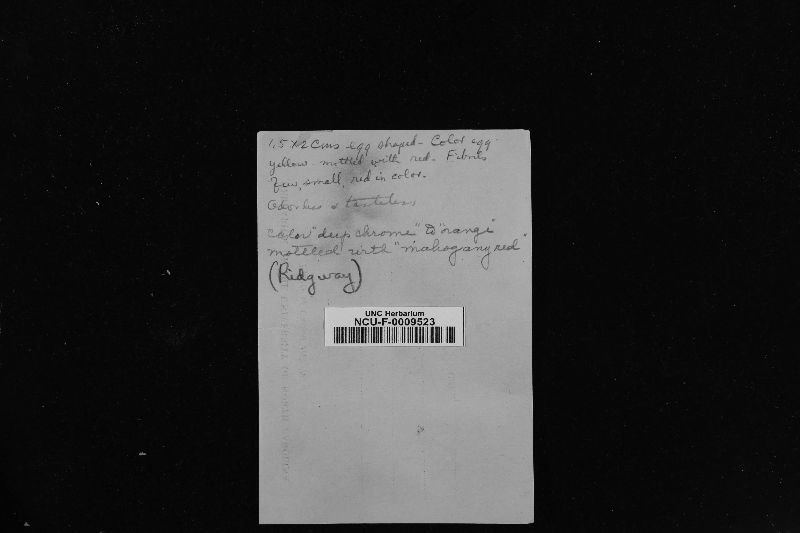 1.5 X 2 Cms - egg shaped - Color egg-
yellow - mottled with red. Fibrils
few, small, red in color.
Odorless & tasteless
Color "deep chrome" to "orange"
mottled with "mahogany red"
(Ridgway)
UNC Herbarium
NCU-F-0009523